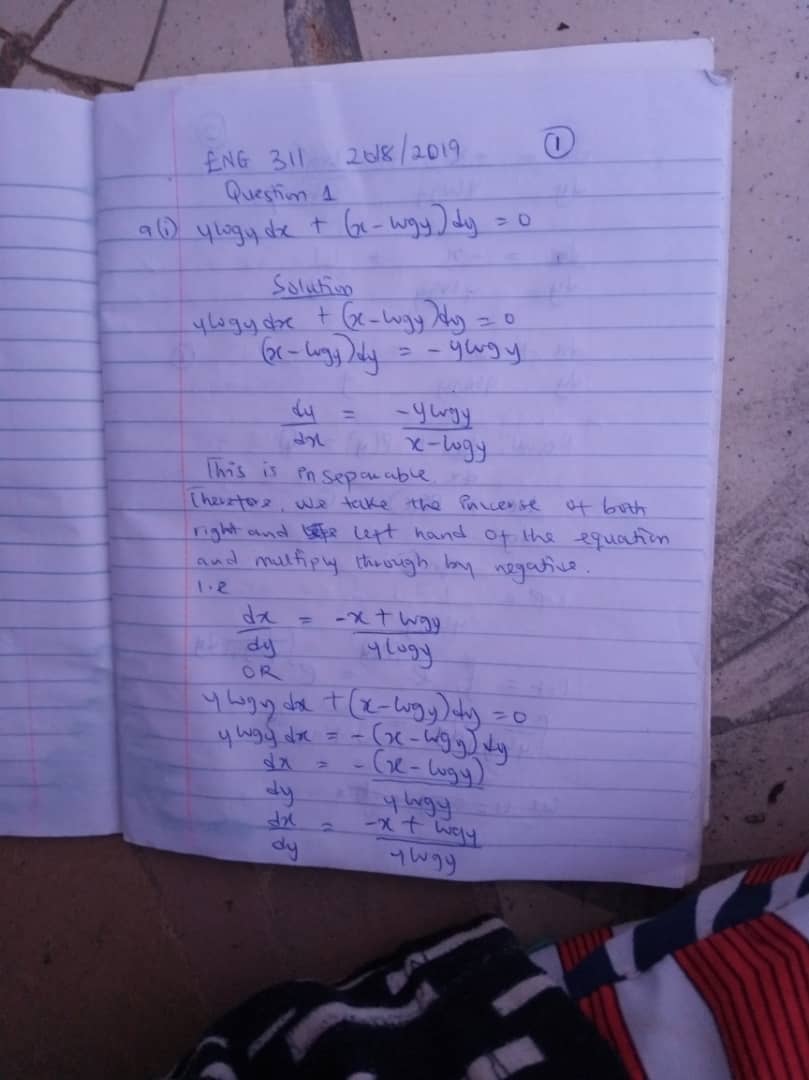 ENG 311 2018/2019 ①
Question 1
a(i) ylogydx + (x-logy)dy = 0
Solution
ylogydx + (x-logy)dy = 0
(x-logy)dy = - ylogy
dy/dx = -ylogy/x-logy
This is inseparable.
Therefore, we take the inverse of both
right and left hand of the equation
and multiply through by negative.
i.e
dx/dy = -x + logy/ylogy
OR
ylogy dx + (x-logy)dy = 0
ylogy dx = - (x-logy)dy
dx/dy = - (x-logy)/ylogy
dx/dy = -x + logy/ylogy